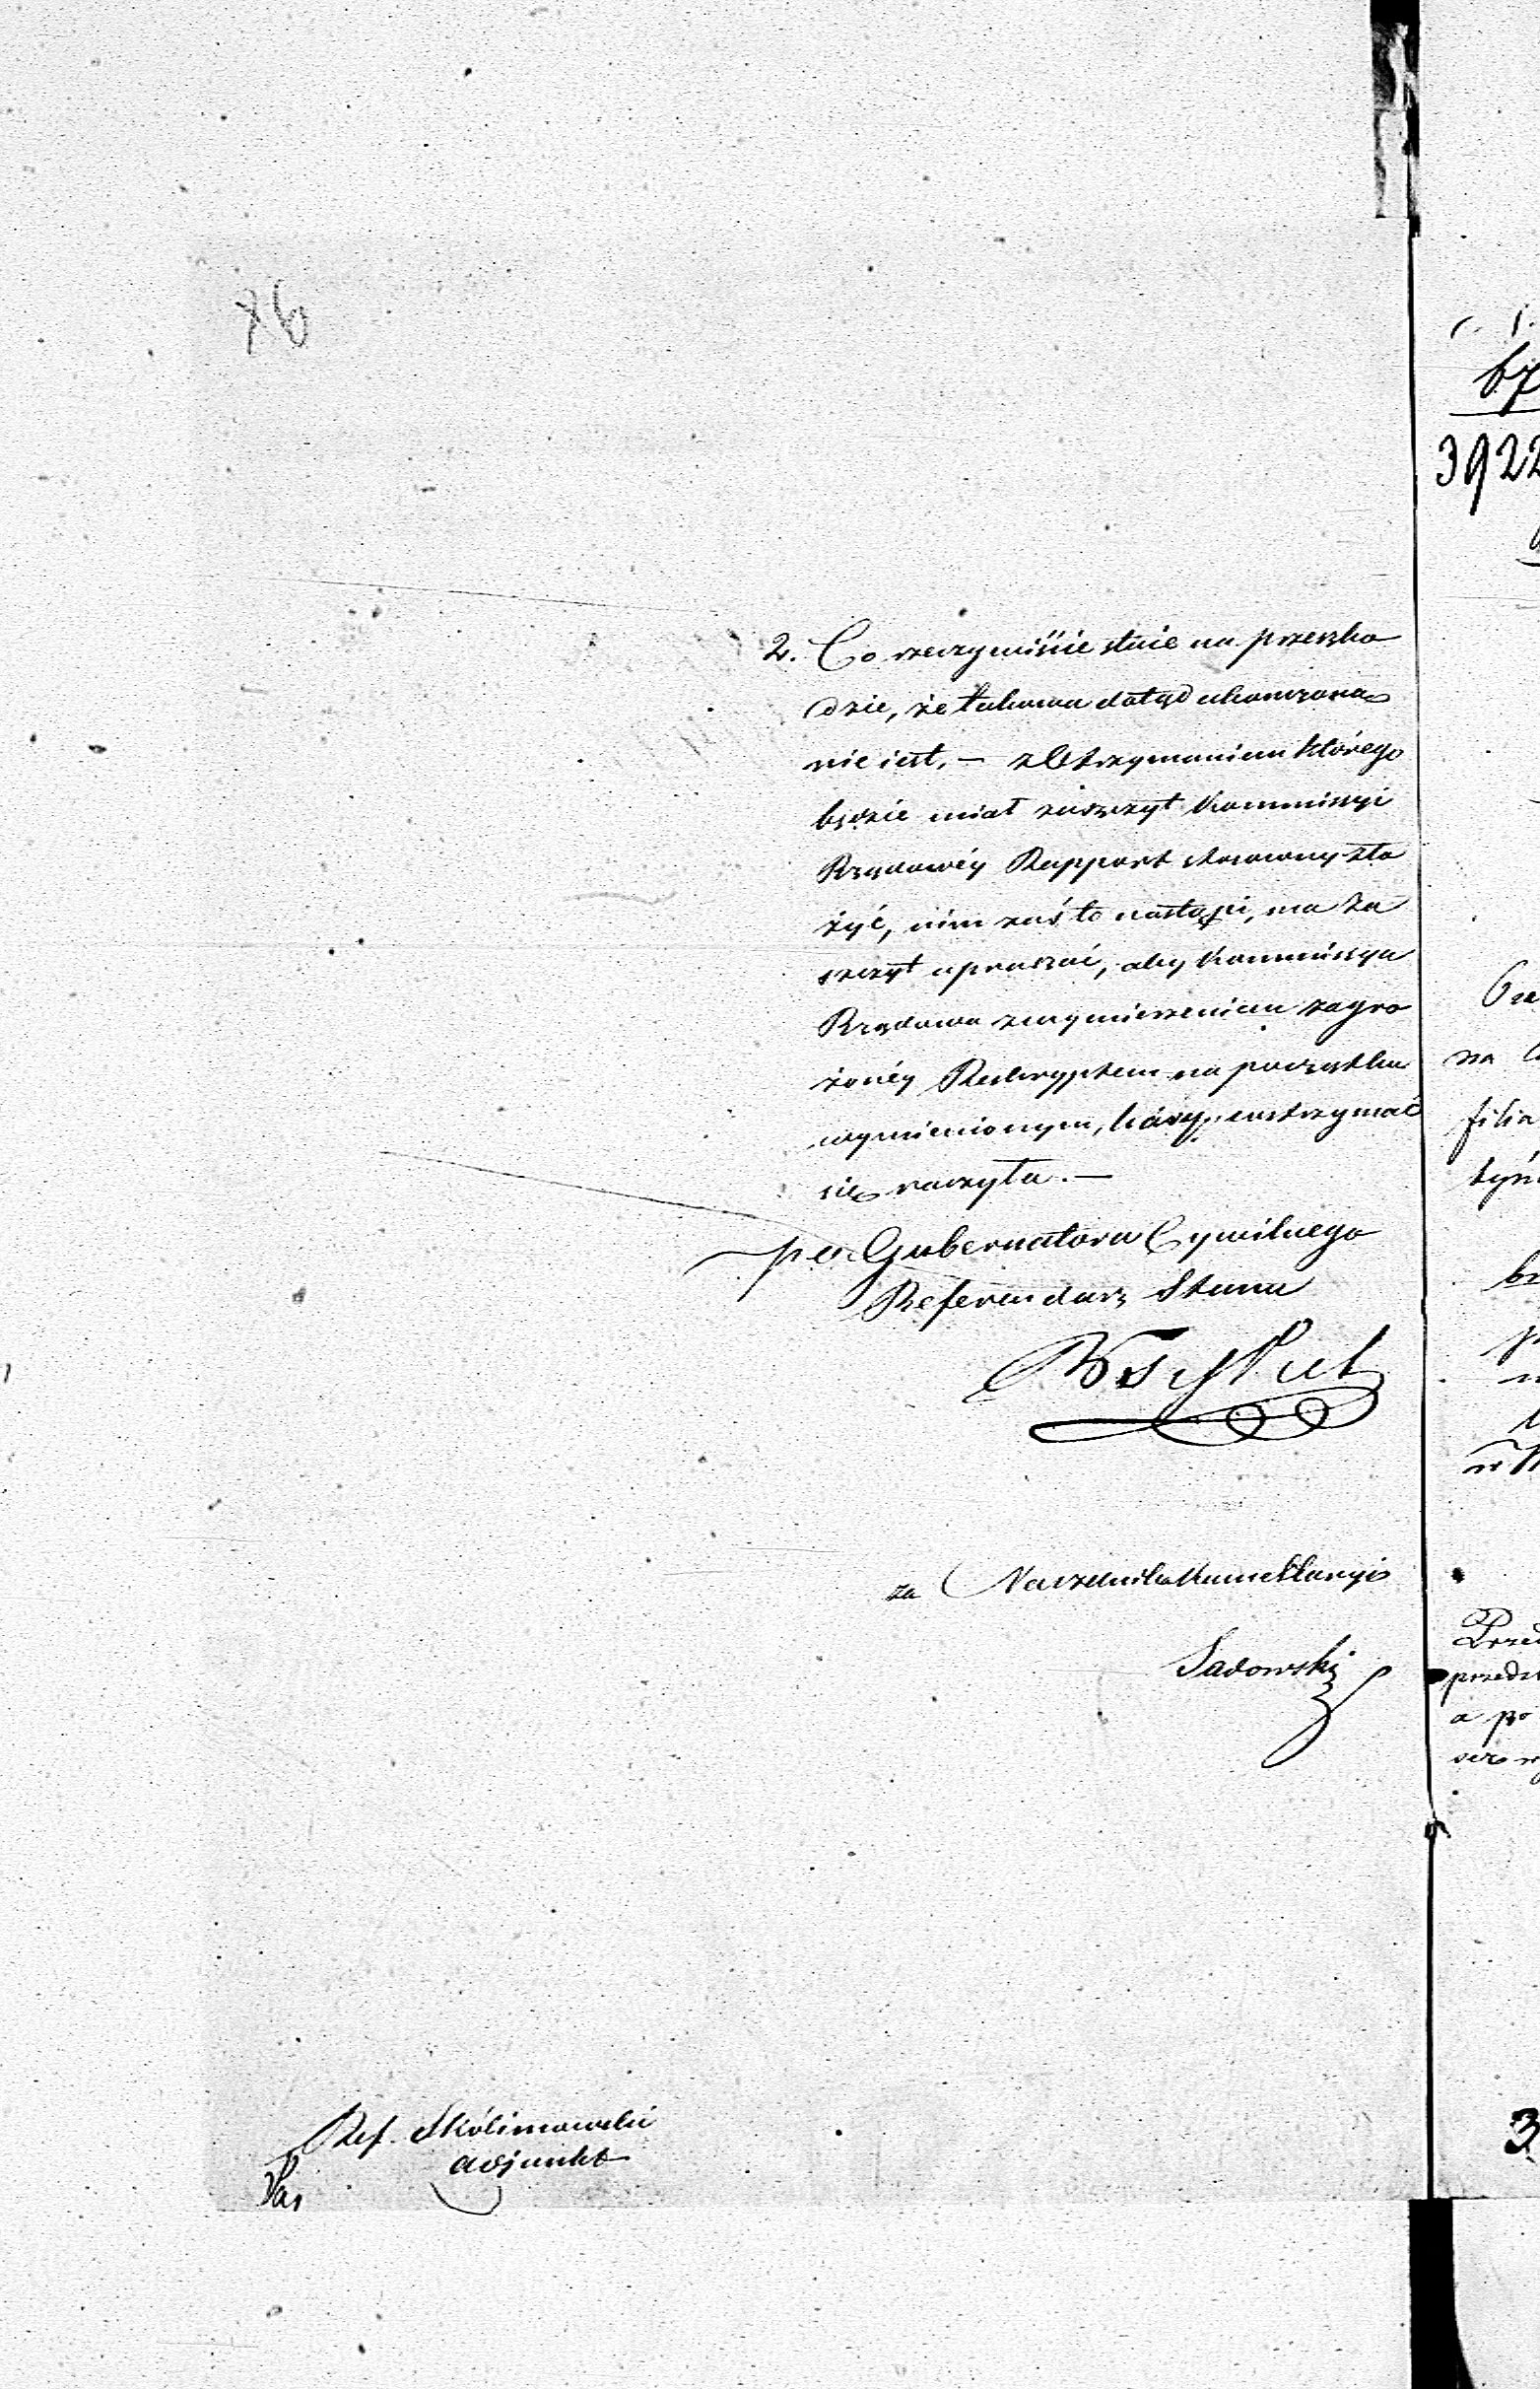 2. Co rzeczywiście stoie na przeszko
dzie, że takowa dotąd ukonczona
nie iest, — z Otrzymaniem którego
będzie miał zaszczyt Kommissyi
Rządowéy Rapport stosowny zło
żyć, nim zaś to nastąpi, ma za
szczyt upraszać, aby Kommissya
Rządowa z wymierzeniem zagro
żonéy Reskryptem na początku
wymienionym, káry, wstrzymać
się raczyła. —
po Gubernatora Cywilnego
Referendarz Stanu
za Naczelnika Kancellaryi
Sadowski
Ref. Skólimowski
adjunkt
3922
filia
Przed
a po
3